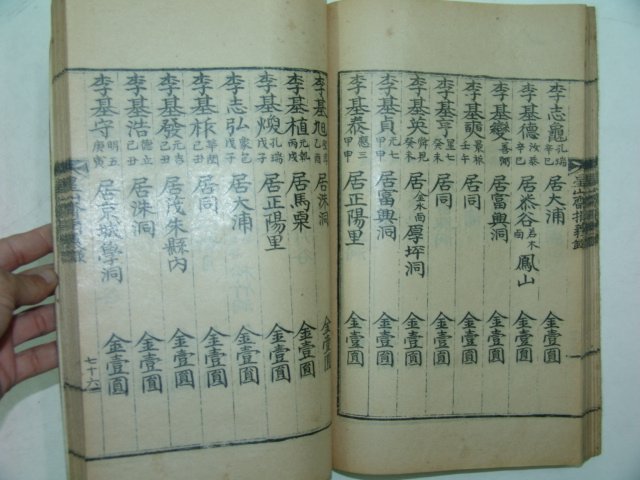 李志龜 孔瑞 辛巳 居大浦 金壹圓
李基德 浚恭 辛巳 居 谷 若木 鳳山 金壹圓
李基燮 善弼 壬午 居富興洞 金壹圓
李基 景 壬午 居同 金壹圓
李基亨 星七 癸未 居同 金壹圓
李基英 舜見 癸未 居 金水面 厚坪洞 金壹圓
李基貞 元七 甲申 居富興洞 金壹圓
李基泰 應三 甲申 居正陽里 金壹圓
李基旭 乙酉 居洙洞 金壹圓
李基植 元 丙戌 居馬栗 金壹圓
李基焕 孔瑞 戊子 居正陽里 金壹圓
李志弘 蒙 戊子 居大浦 金壹圓
李基 華 己丑 居同 金壹圓
李基發 元吉 己丑 居茂朱縣內 金壹圓
李基浩 立 己丑 居洙洞 金壹圓
李基守 明五 庚寅 居京城 洞 金壹圓
七十六